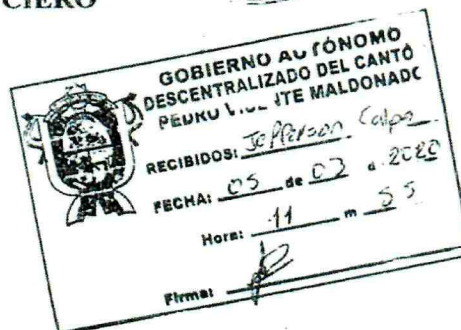 CIERO
GOBIERNO AUTÓNOMO
DESCENTRALIZADO DEL CANTÓ
PEDRO VICENTE MALDONADO
RECIBIDOS: Jefferson Calpa
FECHA: 05 de 03 a 2020
Hora: 11 m 55
Firma: